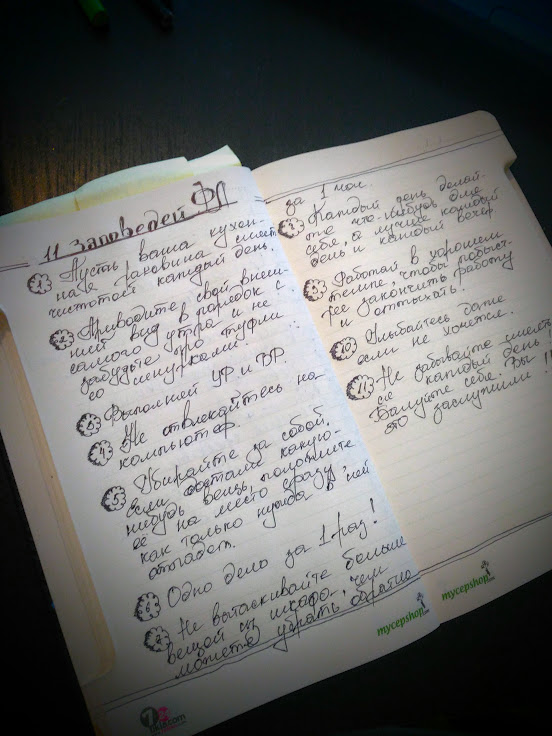 11 заповедей ФЛ
1 Пусть ваша кухон-
ная раковина сияет
чистотой каждый день.
2 Приводите свой внеш-
ний вид в порядок с
самого утра и не
забудьте про туфли
со шнурками
3 Выполняй УР и ВР.
4 Не отвлекайтесь на
компьютер.
5 Убирайте за собой.
Если достали какую-
нибудь вещь, положите
ее на место сразу
как только нужда в ней
отпадет.
6 Одно дело за 1 раз!
7 Не вытаскивайте больше
вещей из шкафа, чем
можете убрать обратно
mycepshop
за 1 час.
8 Каждый день делай-
те что-нибудь для
себя, а лучше каждый
день и каждый вечер.
9 Работай в хорошем
темпе, чтобы побыст-
рее закончить работу
и отдыхать.
10 Улыбайтесь даже
если не хочется.
11 Не забывайте смеять-
ся каждый день!
Балуйте себя. Вы
это заслужили!!
mycepshop